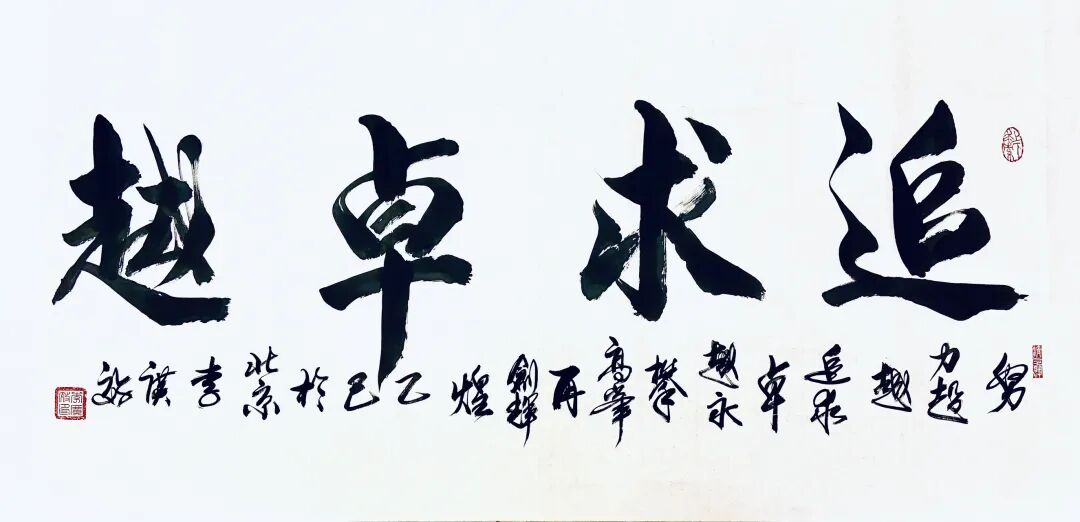 追求卓越
努力超越追求卓越永攀高峯再創輝煌乙巳於北京李